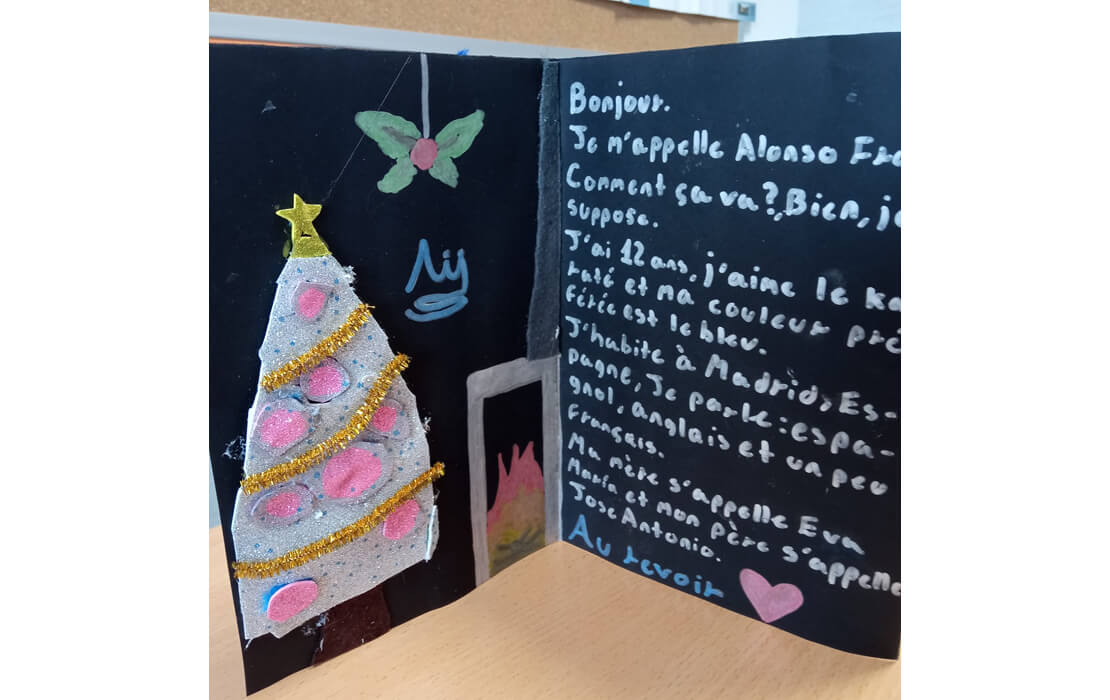 Bonjour.
Je m'appelle Alonso
Comment ça va? Bien,
suppose.
J'ai 12 ans, j'aime le
raté et ma couleur
férée est le bleu.
J'habite à Madrid, Es-
pagne, Je parle: espa-
gnol, anglais et un peu
français.
Ma mère s'appelle Eva
María et mon père s'appelle
Jose Antonio.
Au revoir